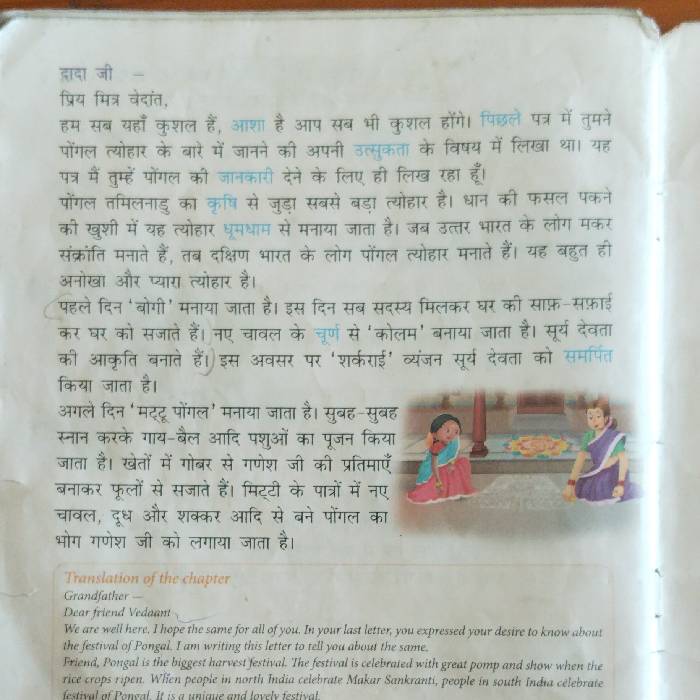 दादा जी –
प्रिय मित्र वेदांत,
हम सब यहाँ कुशल हैं, आशा है आप सब भी कुशल होंगे। पिछले पत्र में तुमने
पोंगल त्योहार के बारे में जानने की अपनी उत्सुकता के विषय में लिखा था। यह
पत्र मैं तुम्हें पोंगल की जानकारी देने के लिए ही लिख रहा हूँ।
पोंगल तमिलनाडु का कृषि से जुड़ा सबसे बड़ा त्योहार है। धान की फसल पकने
की खुशी में यह त्योहार धूमधाम से मनाया जाता है। जब उत्तर भारत के लोग मकर
संक्रांति मनाते हैं, तब दक्षिण भारत के लोग पोंगल त्योहार मनाते हैं। यह बहुत ही
अनोखा और प्यारा त्योहार है।
पहले दिन 'बोगी' मनाया जाता है। इस दिन सब सदस्य मिलकर घर की साफ़-सफ़ाई
कर घर को सजाते हैं। नए चावल के चूर्ण से 'कोलम' बनाया जाता है। सूर्य देवता
की आकृति बनाते हैं। इस अवसर पर 'शर्कराई' व्यंजन सूर्य देवता को समर्पित
किया जाता है।
अगले दिन 'मट्टू पोंगल' मनाया जाता है। सुबह-सुबह
स्नान करके गाय-बैल आदि पशुओं का पूजन किया
जाता है। खेतों में गोबर से गणेश जी की प्रतिमाएँ
बनाकर फूलों से सजाते हैं। मिट्टी के पात्रों में नए
चावल, दूध और शक्कर आदि से बने पोंगल का
भोग गणेश जी को लगाया जाता है।
Translation of the chapter
Grandfather —
Dear friend Vedaant
We are well here. I hope the same for all of you. In your last letter, you expressed your desire to know about
the festival of Pongal. I am writing this letter to tell you about the same.
Friend, Pongal is the biggest harvest festival. The festival is celebrated with great pomp and show when the
rice crops ripen. When people in north India celebrate Makar Sankranti, people in south India celebrate
festival of Pongal. It is a unique and lovely festival.